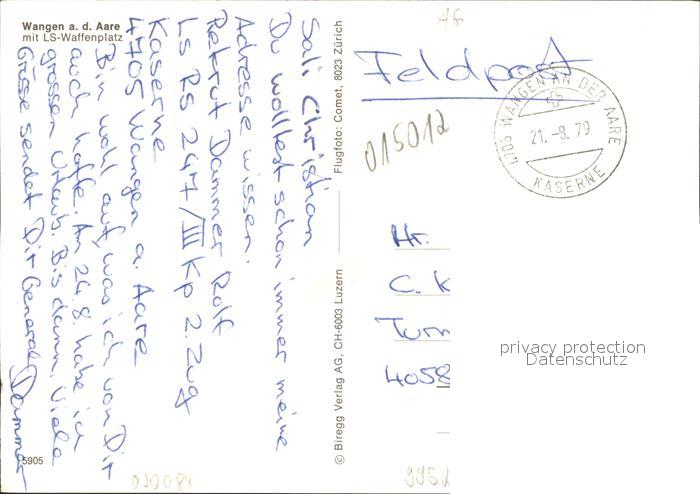 Wangen a. d. Aare
mit LS-Waffenplatz
Sali Christian
Du wolltest schon immer meine
Adresse wissen:
Rekrut Dammer Rolf
LS RS 247/III Kp 2. Zug
Kaserne
4705 Wangen a. Aare
Bin wohl auf, was ich von Dir
auch hoffe. Am 24.8. habe ich
grossen Urlaub. Bis dann, viele
Grüsse sendet Dir General Dammer
5905
© Biregg Verlag AG, CH-6003 Luzern
Flugfoto: Comet, 8023 Zürich
Feldpost
4705 WANGEN AN DER AARE
21.-8.79
KASERNE
015012
Hr.
C. K
Turn
4058
privacy protection
Datenschutz